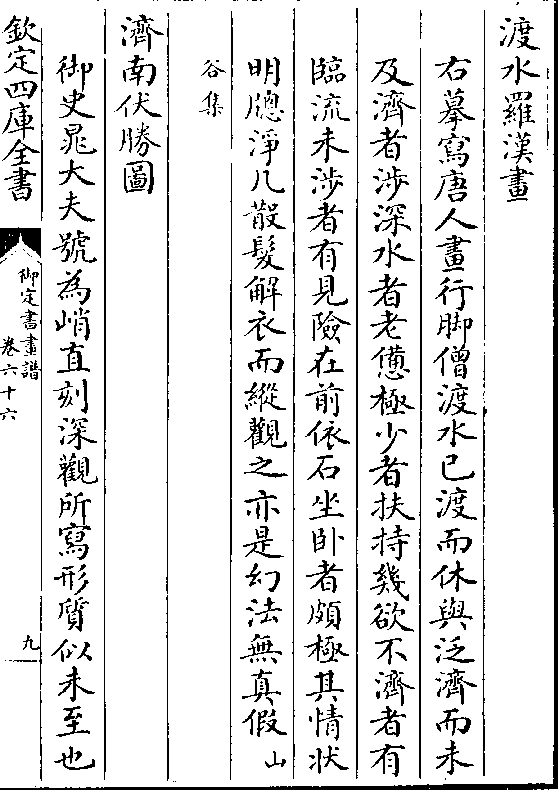 渡水羅漢畫
右摹寫唐人畫行脚僧渡水已渡而休與泛濟而未
及濟者涉深水者老憊極少者扶持幾欲不濟者有
臨流未涉者有見險在前依石坐卧者頗極其情狀
明牕淨几散髮解衣而縱觀之亦是幻法無真假山
谷集
濟南伏勝圖
御史晁大夫號為峭直刻深觀所寫形質似未至也
欽定四庫全書
御定書畫譜
卷六十六
九